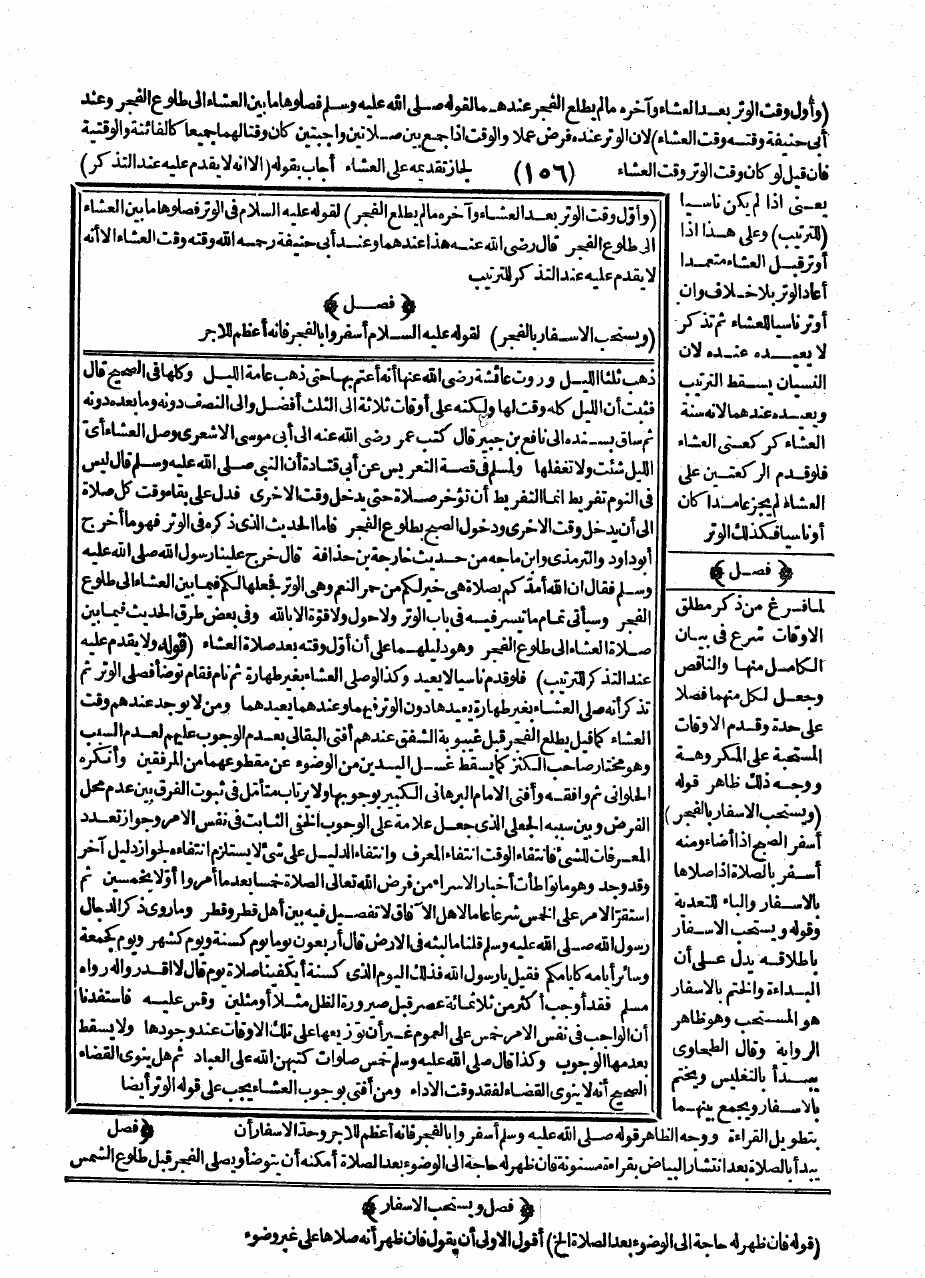 (وأول وقت الوتر بعد العشاء وآخره مالم يطلع الفجر عندهما لقوله صلى الله عليه وسلم فصلوها ما بين العشاء الى طلوع الفجر وعند
أبى حنيفة وقته وقت العشاء) لان الوتر عنده فرض عملا والوقت اذا جمع بين صلاتين واجبتين كان وقتا لهما جميعا كالفائتة والوقتية
فان قيل لو كان وقت الوتر وقت العشاء (١٥٦) لجاز تقديمه على العشاء أجاب بقوله (الا انه لا يقدم عليه عند التذكر)
يعنى اذا لم يكن ناسيا
(للترتيب) وعلى هذا اذا
أوتر قبل العشاء متعمدا
أعاد الوتر بلا خلاف وان
أوتر ناسيا للعشاء ثم تذكر
لا يعيده عنده لان
النسيان يسقط الترتيب
ويعيده عندهما لانه سنة
العشاء كركعتى العشاء
فلو قدم الركعتين على
العشاء لم يجز عامدا كان
أو ناسيا فكذلك الوتر
﴿ فصل ﴾
لما فرغ من ذكر مطلق
الاوقات شرع فى بيان
الكامل منها والناقص
وجعل لكل منهما فصلا
على حدة وقدم الاوقات
المستحبة على المكروهة
ووجه ذلك ظاهر قوله
(ويستحب الاسفار بالفجر)
أسفر الصبح اذا أضاء ومنه
أسفر بالصلاة اذا صلاها
بالاسفار والباء للتعدية
وقوله ويستحب الاسفار
باطلاقه يدل على أن
البداءة والختم بالاسفار
هو المستحب وهو ظاهر
الرواية وقال الطحاوى
يبدأ بالتغليس ويختم
بالاسفار ويجمع بينهما
بتطويل القراءة ووجه الظاهر قوله صلى الله عليه وسلم أسفروا بالفجر فانه أعظم للاجر وحد الاسفار أن ﴿ فصل
يبدأ بالصلاة بعد انتشار البياض بقراءة مسنونة فان ظهر له حاجة الى الوضوء بعد الصلاة أمكنه أن يتوضأ ويصلى الفجر قبل طلوع الشمس
(وأول وقت الوتر بعد العشاء وآخره مالم يطلع الفجر) لقوله عليه السلام فى الوتر فصلوها ما بين العشاء
الى طلوع الفجر قال رضى الله عنه هذا عندهما وعند أبى حنيفة رحمه الله وقته وقت العشاء الا أنه
لا يقدم عليه عند التذكر للترتيب
﴿ فصل ﴾
(ويستحب الاسفار بالفجر) لقوله عليه السلام أسفروا بالفجر فانه أعظم للاجر
ذهب ثلثا الليل وروت عائشة رضى الله عنها أنه أعتم بها حتى ذهب عامة الليل وكلها فى الصحيح قال
فثبت أن الليل كله وقت لها ولكنه على أوقات ثلاثة الى الثلث أفضل والى النصف دونه وما بعده دونه
ثم ساق بسنده الى نافع بن جبير قال كتب عمر رضى الله عنه الى أبى موسى الاشعرى وصل العشاء أى
الليل شئت ولا تغفلها ولمسلم فى قصة التعريس عن أبى قتادة أن النبى صلى الله عليه وسلم قال ليس
فى النوم تفريط انما التفريط أن تؤخر صلاة حتى يدخل وقت الاخرى فدل على بقاء وقت كل صلاة
الى أن يدخل وقت الاخرى ودخول الصبح بطلوع الفجر فاما الحديث الذى ذكره فى الوتر فهو ما أخرج
أبو داود والترمذى وابن ماجه من حديث خارجة بن حذافة قال خرج علينا رسول الله صلى الله عليه
وسلم فقال ان الله أمدكم بصلاة هى خير لكم من حمر النعم وهى الوتر فجعلها لكم فيما بين العشاء الى طلوع
الفجر وسيأتى تمام ما تيسر فيه فى باب الوتر ولا حول ولا قوة الا بالله وفى بعض طرق الحديث فيما بين
صلاة العشاء الى طلوع الفجر وهو دليلهما على أن أول وقته بعد صلاة العشاء (قوله ولا يقدم عليه
عند التذكر للترتيب) فلو قدم ناسيا لا يعيد وكذا لو صلى العشاء بغير طهارة ثم نام فقام توضأ فصلى الوتر ثم
تذكر أنه صلى العشاء بغير طهارة يعيدها دون الوتر وعندهما يعيدهما ومن لا يوجد عندهم وقت
العشاء كما قيل يطلع الفجر قبل غيبوبة الشفق عندهم أفتى البقالى بعدم الوجوب عليهم لعدم السبب
وهو مختار صاحب الكنز كما يسقط غسل اليدين من الوضوء عن مقطوعهما من المرفقين وأنكره
الحلوانى ثم وافقه وأفتى الامام البرهانى الكبير بوجوبها ولا يرتاب متأمل فى ثبوت الفرق بين عدم محل
الفرض وبين سببه الجعلى الذى جعل علامة على الوجوب الخفى الثابت فى نفس الامر وجواز تعدد
المعرفات للشئ فانتفاء الوقت انتفاء المعرف وانتفاء الدليل على شئ لا يستلزم انتفاءه لجواز دليل آخر
وقد وجد وهو ما تواطأت أخبار الاسراء من فرض الله تعالى الصلاة خمسا بعد ما أمروا أولا بخمسين ثم
استقر الامر على الخمس شرعا عاما لاهل الآفاق لا تفصيل فيه بين أهل قطر وقطر وما روى ذكر الدجال
رسول الله صلى الله عليه وسلم قلنا ما لبثه فى الارض قال أربعون يوما يوم كسنة ويوم كشهر ويوم كجمعة
وسائر أيامه كايامكم فقيل يارسول الله فذلك اليوم الذى كسنة أيكفينا صلاة يوم قال لا اقدروا له رواه
مسلم فقد أوجب أكثر من ثلاثمائة عصر قبل صيرورة الظل مثلا أو مثلين وقس عليه فاستفدنا
أن الواجب فى نفس الامر خمس على العموم غير أن توزيعها على تلك الاوقات عند وجودها ولا يسقط
بعدمها الوجوب وكذا قال صلى الله عليه وسلم خمس صلوات كتبهن الله على العباد ثم هل ينوى القضاء
الصحيح أنه لا ينوى القضاء لفقد وقت الاداء ومن أفتى بوجوب العشاء يجب على قوله الوتر أيضا
﴿ فصل ويستحب الاسفار ﴾
(قوله فان ظهر له حاجة الى الوضوء بعد الصلاة الخ) أقول الاولى أن يقول فان ظهر أنه صلاها على غير وضوء